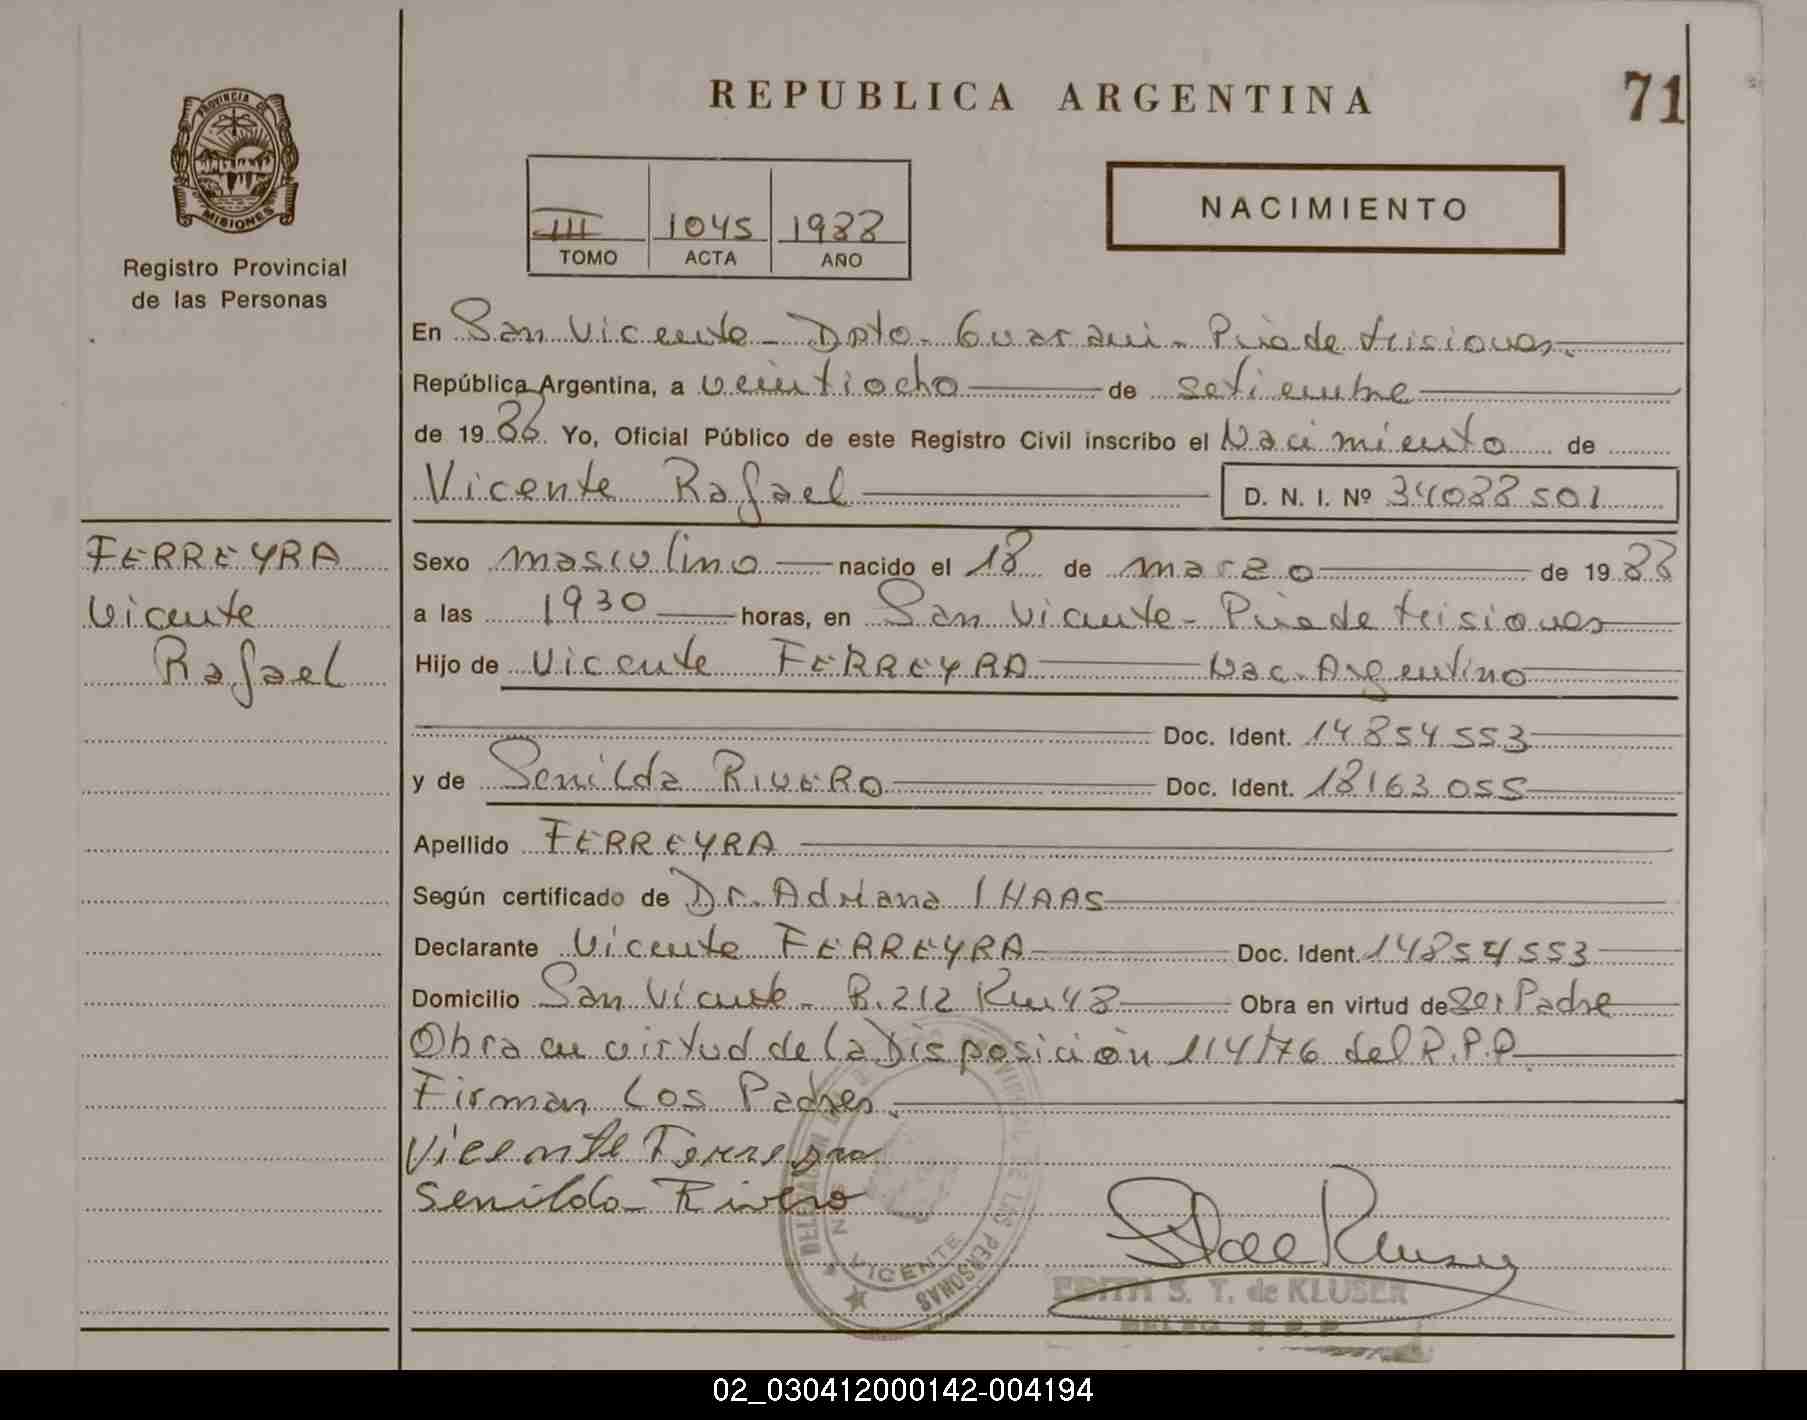 PROVINCIA DE
MISIONES
Registro Provincial
de las Personas
REPUBLICA ARGENTINA
71
III 1045 1988
TOMO ACTA AÑO
NACIMIENTO
En San Vicente - Dpto. Guarani - Pcia de Misiones.
República Argentina, a veintiocho de setiembre
de 1988 Yo, Oficial Público de este Registro Civil inscribo el Nacimiento de
Vicente Rafael D. N. I. Nº 34088501
FERREYRA
Vicente
Rafael
Sexo masculino nacido el 18 de marzo de 1988
a las 1930 horas, en San Vicente - Pcia de Misiones
Hijo de Vicente FERREYRA Nac. Argentino
Doc. Ident. 14854553
y de Senilda RIVERO Doc. Ident. 18163055
Apellido FERREYRA
Según certificado de Dr. Adriana I HAAS
Declarante Vicente FERREYRA Doc. Ident. 14854553
Domicilio San Vicente - R.212 Km 48 Obra en virtud de ser Padre
Obra en virtud de la Disposición 114/76 del R.P.P.
Firman Los Padres.
Vicente Ferreyra
Senilda Rivero
VICENTE
DE LAS PERSONAS
EDITH S. T. de KLUSER
DELEG. R. P. P.
02_030412000142-004194